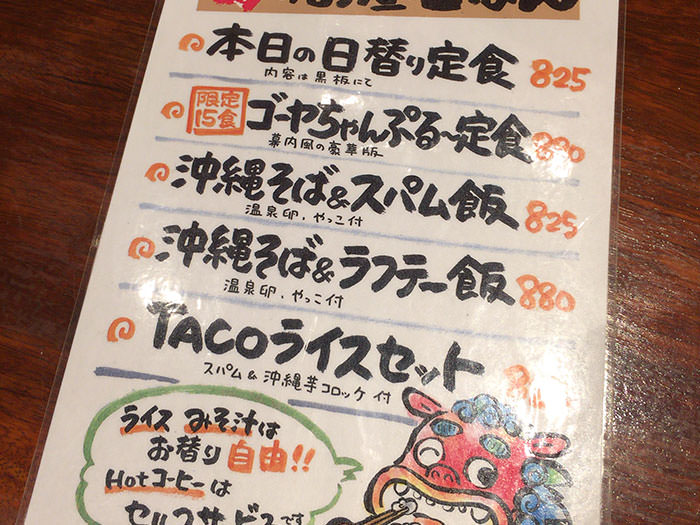 ごはん
本日の日替り定食 825
内容は黒板にて
限定
15食
ゴーヤちゃんぷる〜定食
幕内風の豪華版
沖縄そば&スパム飯 825
温泉卵、やっこ付
沖縄そば&ラフテー飯 880
温泉卵、やっこ付
TACOライスセット
スパム&沖縄芋コロッケ付
ライス みそ汁は
お替り自由!!
Hotコーヒーは
セルフサービスです